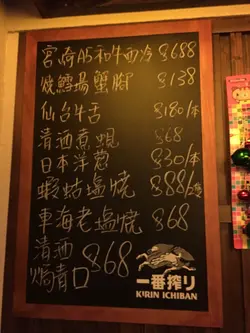 宮崎A5和牛西冷 $688
燒鱈場蟹腳 $138
仙台牛舌 $180/本
清酒煮蜆 $68
日本洋葱 $30/本
蝦蛄塩燒 $888/2隻
車海老塩燒 $68
清酒
焗青口 $68
一番搾り
KIRIN ICHIBAN